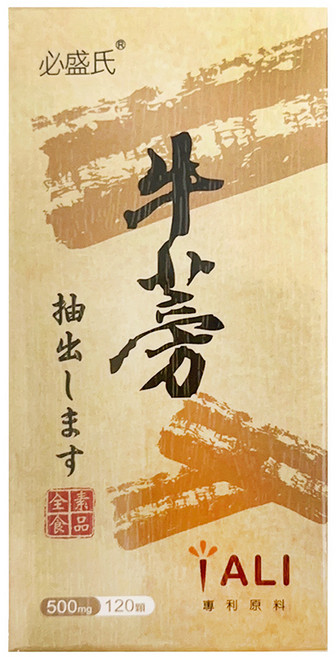 必盛氏®
牛蒡
抽出します
全素
食品
iALI
專利原料
500mg 120顆